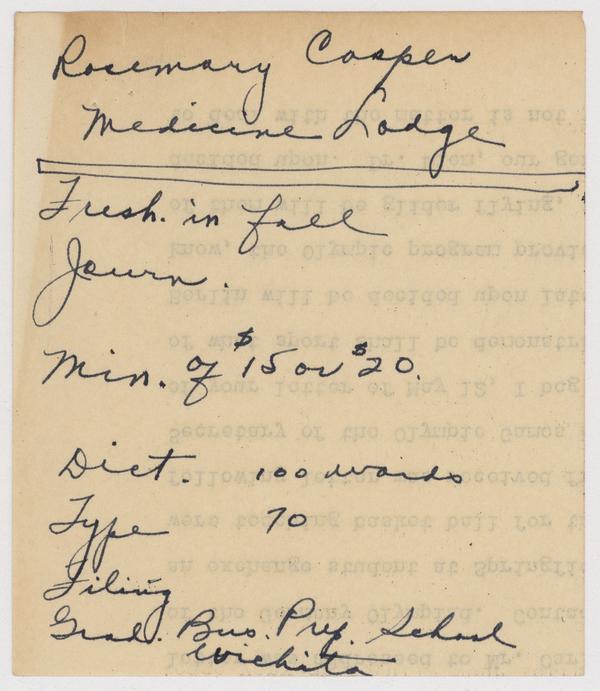 Rosemary Cooper
Medicine Lodge
Fresh. in fall
Journ.
Min. of $15 or $20.
Dict. 100 words
Type 70
Filing
Grad. Bus. Prep. School
Wichita